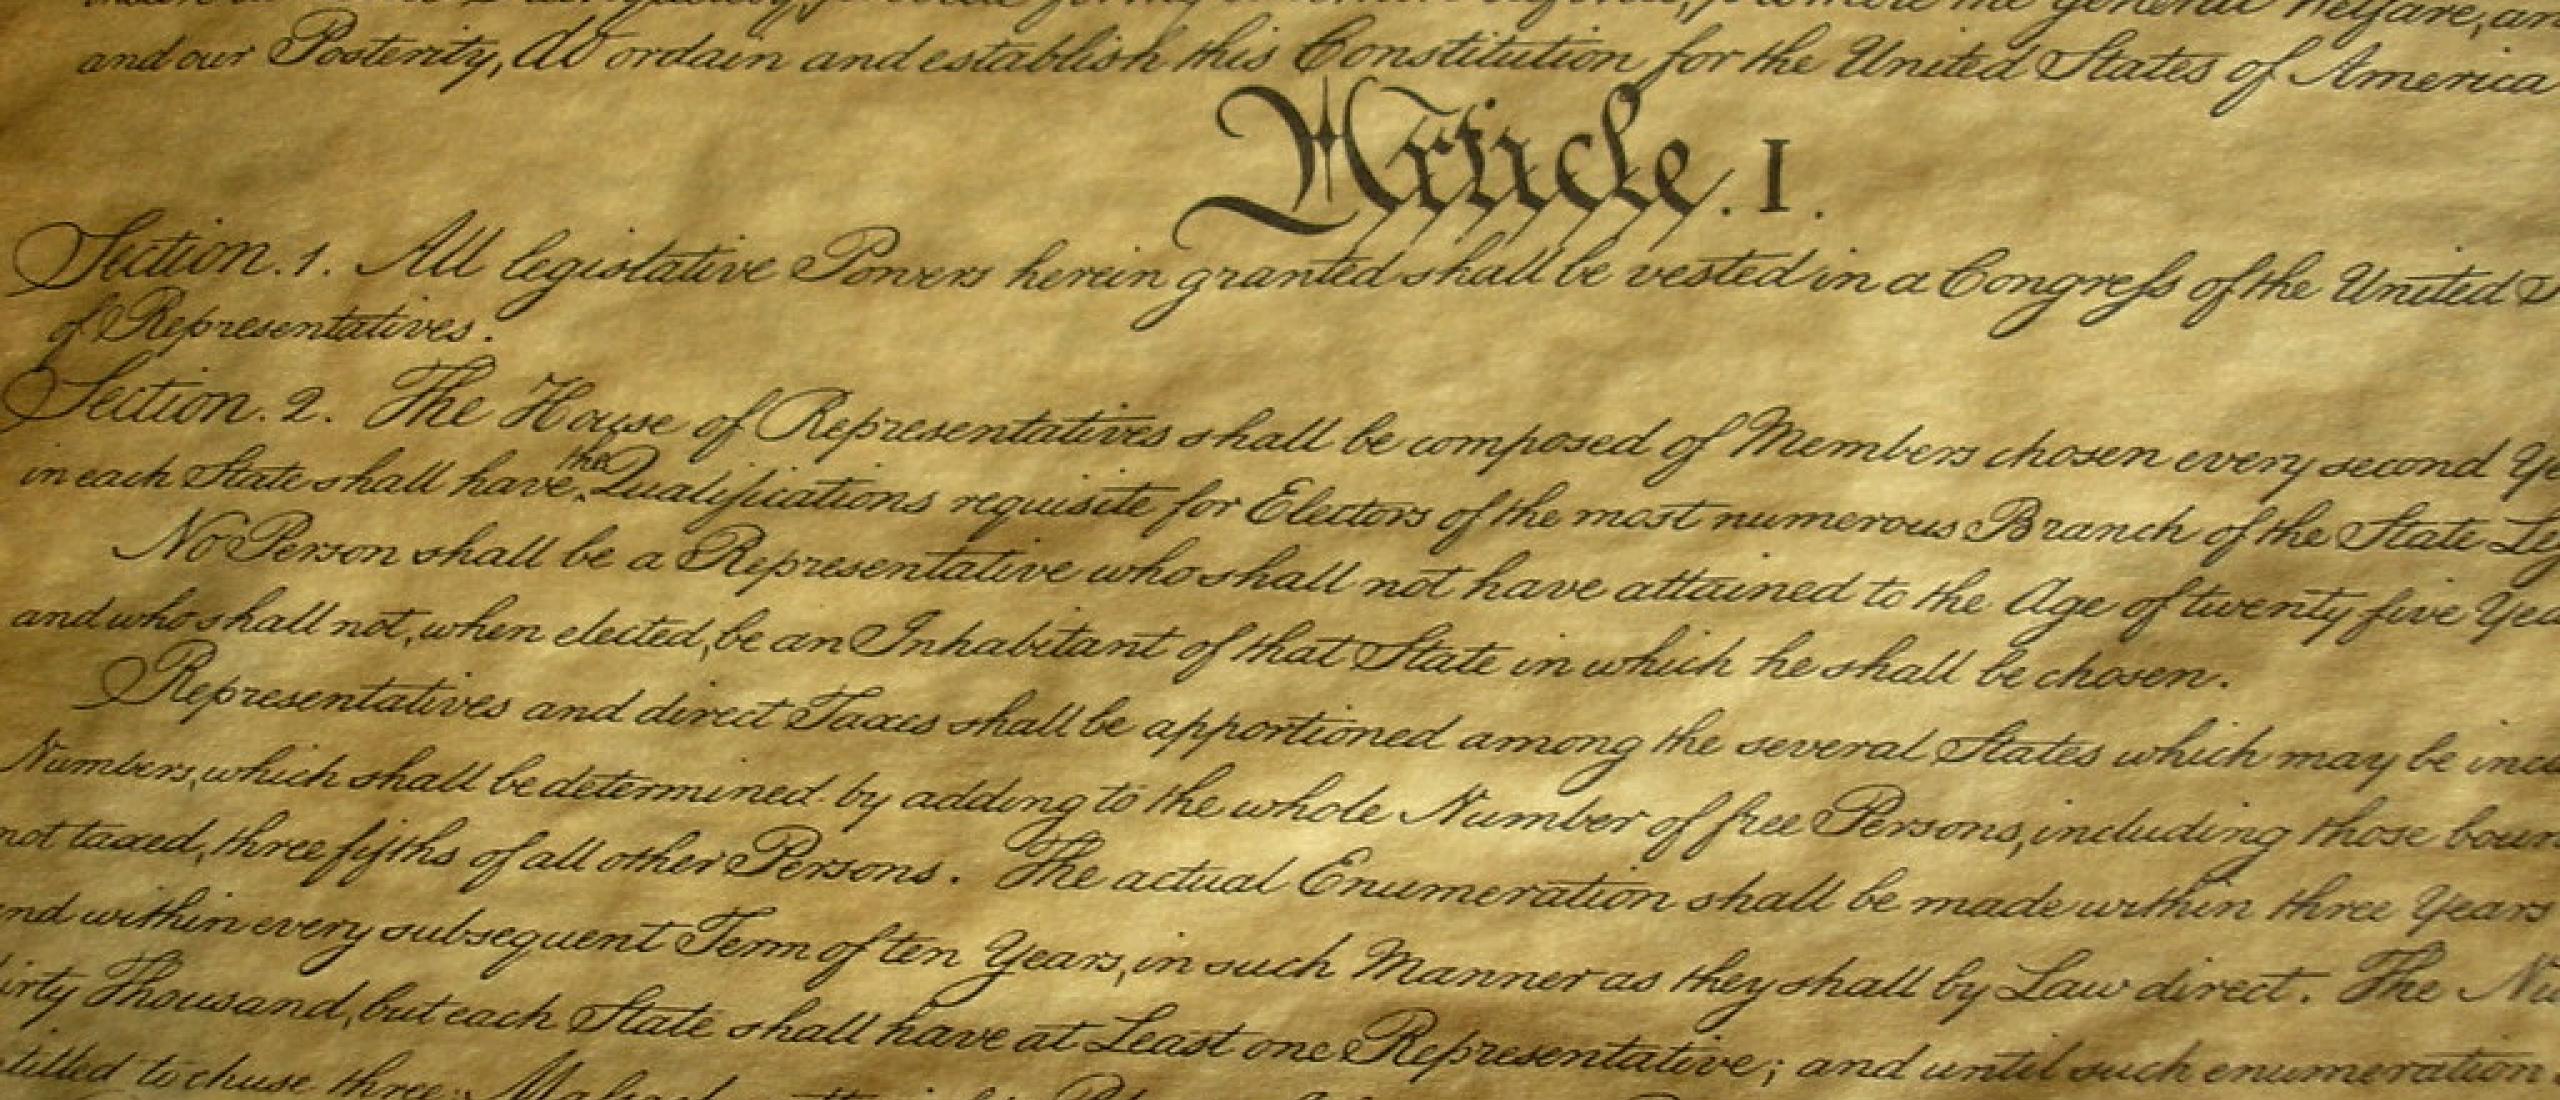 and our Posterity, do ordain and establish this Constitution for the United States of America
Article. I.
Section. 1. All legislative Powers herein granted shall be vested in a Congreſs of the United
of Representatives.
Section. 2. The House of Representatives shall be composed of Members chosen every second Ye
the
in each State shall have Qualifications requisite for Electors of the most numerous Branch of the State Leg
No Person shall be a Representative who shall not have attained to the Age of twenty five Yea
and who shall not, when elected, be an Inhabitant of that State in which he shall be chosen.
Representatives and direct Taxes shall be apportioned among the several States which may be inc
Numbers, which shall be determined by adding to the whole Number of free Persons, including those boun
not taxed, three fifths of all other Persons. The actual Enumeration shall be made within three Years
nd within every subsequent Term of ten Years, in such Manner as they shall by Law direct. The Nu
irty Thousand, but each State shall have at Least one Representative; and until such enumeration
titled to chuse three,